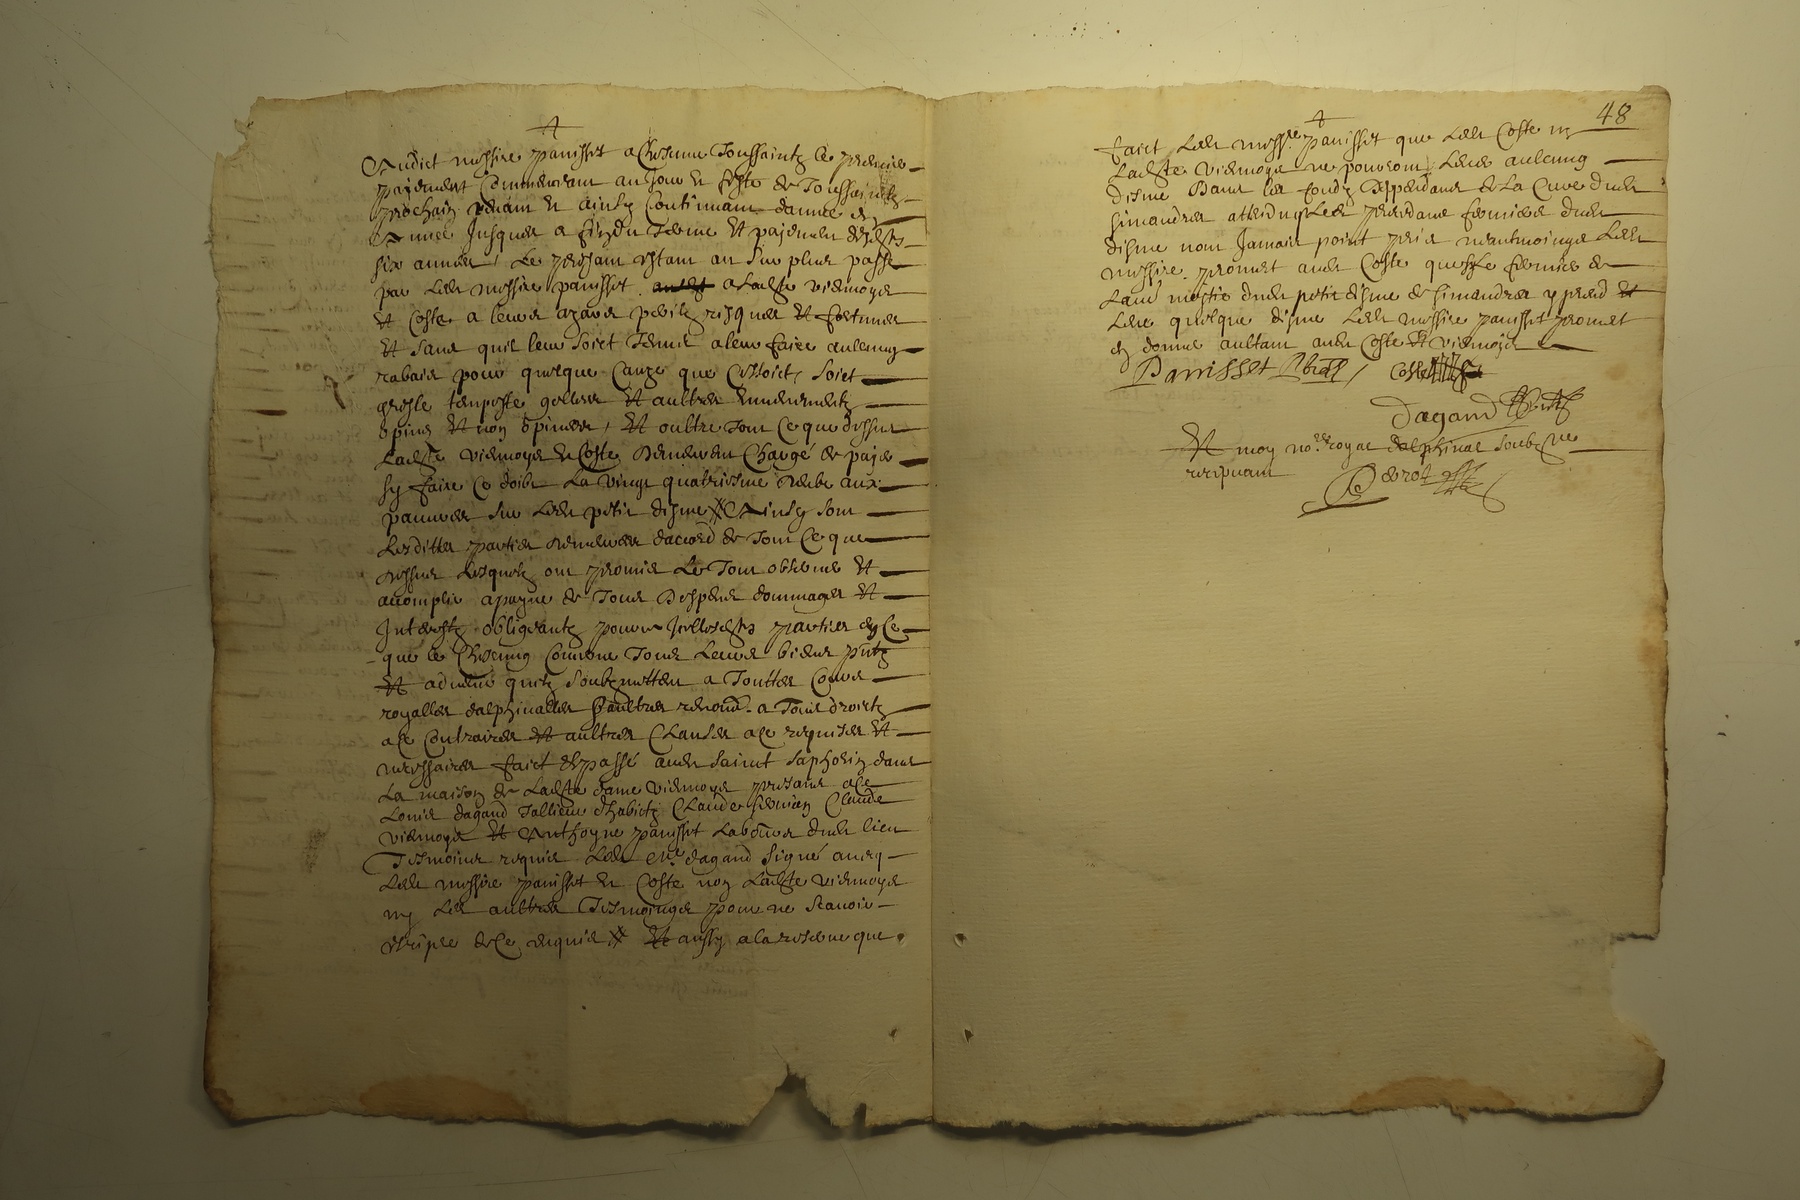 Audict messire panisset a Chescune Toussaintz le premier
payement Commencant au jour et feste de Toussaintz
prochain venant et ainsy Continuant dannee en
Annee Jusques a fin du Terme et payement desdictes
six annees, Le present estant au surplus passé
par Ledit messire panisset a Ladicte viennoys
Et Coste a leurs azard perilz risques Et fortunes
Et sans quil leur soict Tenu a leur faire aulcung
rabais pour quelque Cauze que Ce soict, soict
gresle tempeste gellees Et aultres
opines Et non opinees, Et oultre Tout Ce que dessus
Ladicte viennoys et Coste demeurent Chargé de payer
sy faire Ce doibt La vingt quatriesme aux
pauvres sur Ledit petit disme Ainsy sont
Lesdittes parties demeurees daccord de Tout Ce que
dessus Lesquelz ont promis Le Tout observer Et
accomplir a payne de Tous despens dommages Et
Interestz obligeantz pour Ce Icellesdictes parties en Ce
que le Chescung Concerne Tous Leurs biens pntz
Et advenir quilz soubzmettent a Touttes Cours
royalles dalphinalles Et aultres renoncé a Tous droictz
a Ce Contraires Et aultres Clauses a Ce requises Et
necessaires faict Et passé audit saint saphorin dans
La maison de Ladicte dame viennoys presans a Ce
Louis dagand Tallieur dhabictz Claude Claude
viennoys Et Anthoyne panisset Laboureur dudit lieu
Tesmoins requis Ledit Mre dagand signé avecq
Ledit messire panisset et Coste non Ladicte viennoys
ny Les aultres Tesmoings pour ne scavoir
escripre de Ce enquis Et aussy a la reserve que
48
faict Ledit messre panisset que Ledit Coste ny
Ladicte viennoys ne pourront Lever aulcung
disme dans les fondz deppendans de La Cure dudit
simandres attendu que Les precedans fermiers dudit
disme nont Jamais point pris neantmoings Ledit
messire promet audit Coste que sy Le fermier de
Lautre moitié dudit petit disme de simandres y prend Et
Leve quelque disme Ledit messire panisset promet
en donner aultant audit Coste Et viennoys
Panisset Coste
Dagand
Et moy nore royal dalphinal soubzne
recepvant